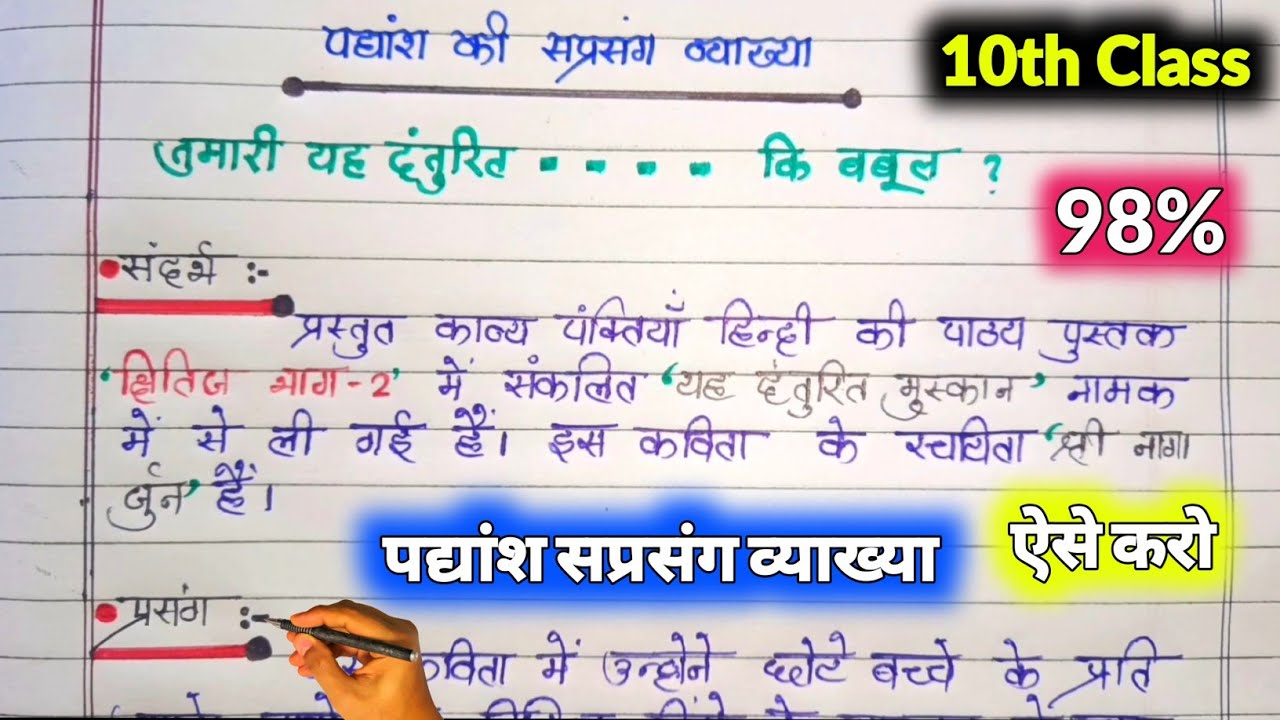 पद्यांश की सप्रसंग व्याख्या
10th Class
तुमारी यह दंतुरित - - - - कि बबूल ?
98%
संदर्भ :-
प्रस्तुत काव्य पंक्तियाँ हिन्दी की पाठ्य पुस्तक
'क्षितिज भाग-2' में संकलित 'यह दंतुरित मुस्कान' नामक
में से ली गई हैं। इस कविता के रचयिता 'श्री नागा
र्जुन' हैं।
पद्यांश सप्रसंग व्याख्या
ऐसे करो
प्रसंग :-
कविता में उन्होने छोटे बच्चे के प्रति